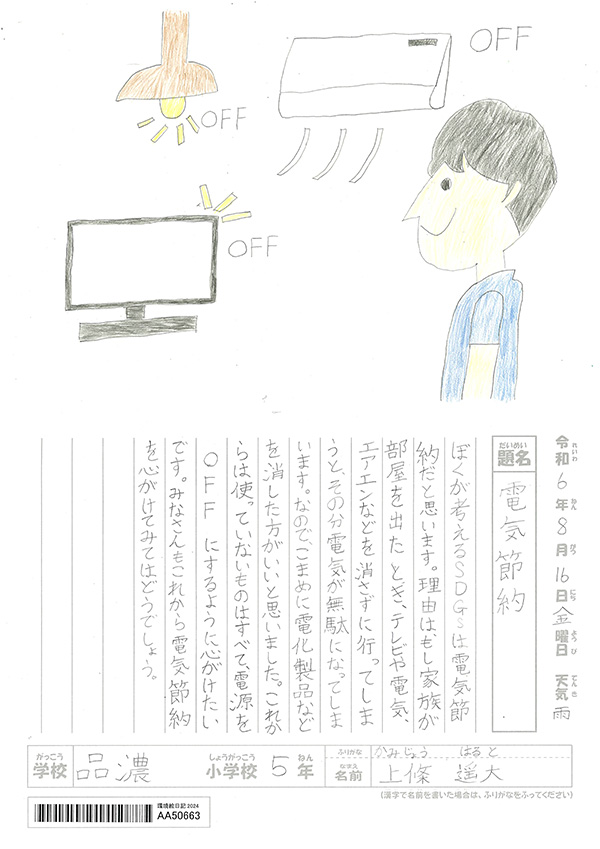 OFF
OFF
OFF
令和6年8月16日金曜日 天気 雨
れいわ ねん がつ にち ようび てんき
だいめい
題名 電気節約
ぼくが考えるSDGsは電気節
約だと思います。理由は、もし家族が
部屋を出たとき、テレビや電気、
エアエンなどを消さずに行ってしま
うと、その分電気が無駄になってしま
います。なので、こまめに電化製品など
を消した方がいいと思いました。これか
らは使っていないものはすべて、電源を
OFFにするように心がけたい
です。みなさんもこれから電気節約
を心がけてみてはどうでしょう。
がっこう しょうがっこう ねん ふりがな かみじょう はると
学校 品濃 小学校 5年 なまえ 名前 上條 遥大
(漢字で名前を書いた場合は、ふりがなをふってください)
環境絵日記 2024
AA50663